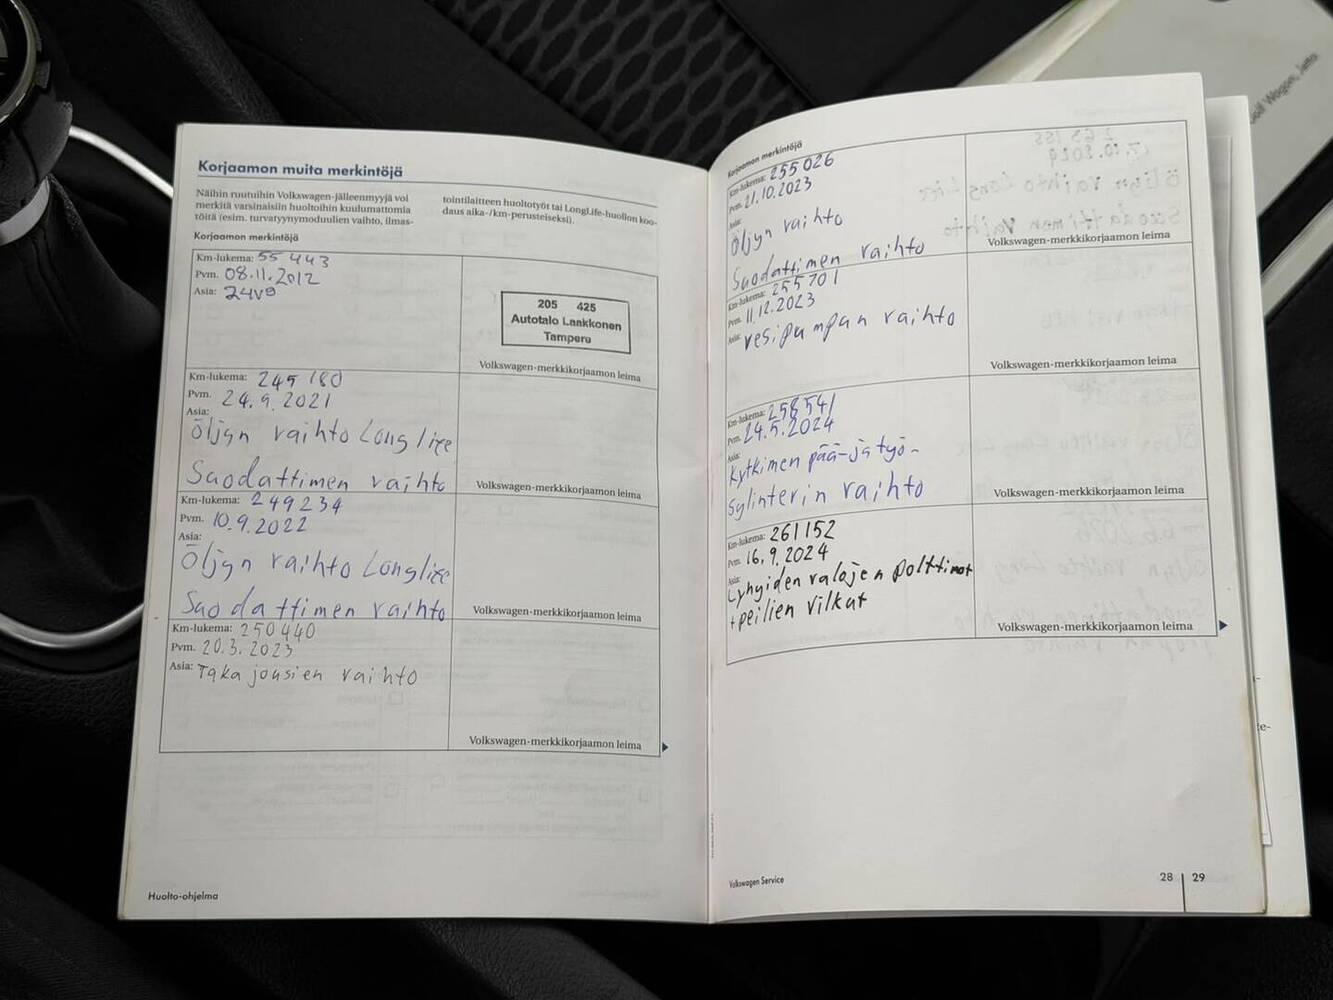 Korjaamon muita merkintöjä
Näihin ruutuihin Volkswagen-jälleenmyyjä voi
merkitä varsinaisiin huoltoihin kuulumattomia
töitä (esim. turvatyynymoduulien vaihto, ilmas-
tointilaitteen huoltotyöt tai LongLife-huollon koo-
daus aika-/km-perusteiseksi).
Korjaamon merkintöjä
Km-lukema: 55 443
Pvm. 08.11.2012
Asia: 24V9
205 425
Autotalo Laakkonen
Tampere
Volkswagen-merkkikorjaamon leima
Km-lukema: 245 180
Pvm. 24.9.2021
Asia:
Öljyn vaihto Longlife
Suodattimen vaihto
Volkswagen-merkkikorjaamon leima
Km-lukema: 249234
Pvm. 10.9.2022
Asia:
Öljyn vaihto Longlife
Suodattimen vaihto
Volkswagen-merkkikorjaamon leima
Km-lukema: 250440
Pvm. 20.3.2023
Asia: Taka jousien vaihto
Volkswagen-merkkikorjaamon leima
Huolto-ohjelma
Korjaamon merkintöjä
Km-lukema: 255026
Pvm. 21.10.2023
Asia:
Öljyn vaihto
Suodattimen vaihto
Volkswagen-merkkikorjaamon leima
Km-lukema: 255701
Pvm. 11.12.2023
Asia: vesipumpan vaihto
Volkswagen-merkkikorjaamon leima
Km-lukema: 258541
Pvm. 24.5.2024
Asia:
Kytkimen pää-ja työ-
sylinterin vaihto
Volkswagen-merkkikorjaamon leima
Km-lukema: 261152
Pvm. 16.9.2024
Asia:
Lyhyiden valojen polttimot
+peilien vilkut
Volkswagen-merkkikorjaamon leima
Volkswagen Service
28 29
Wagon, Jetta